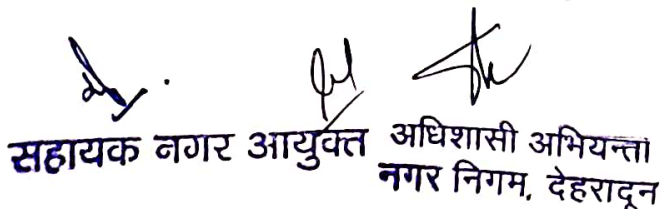 सहायक नगर आयुक्त अधिशासी अभियन्ता
नगर निगम, देहरादून